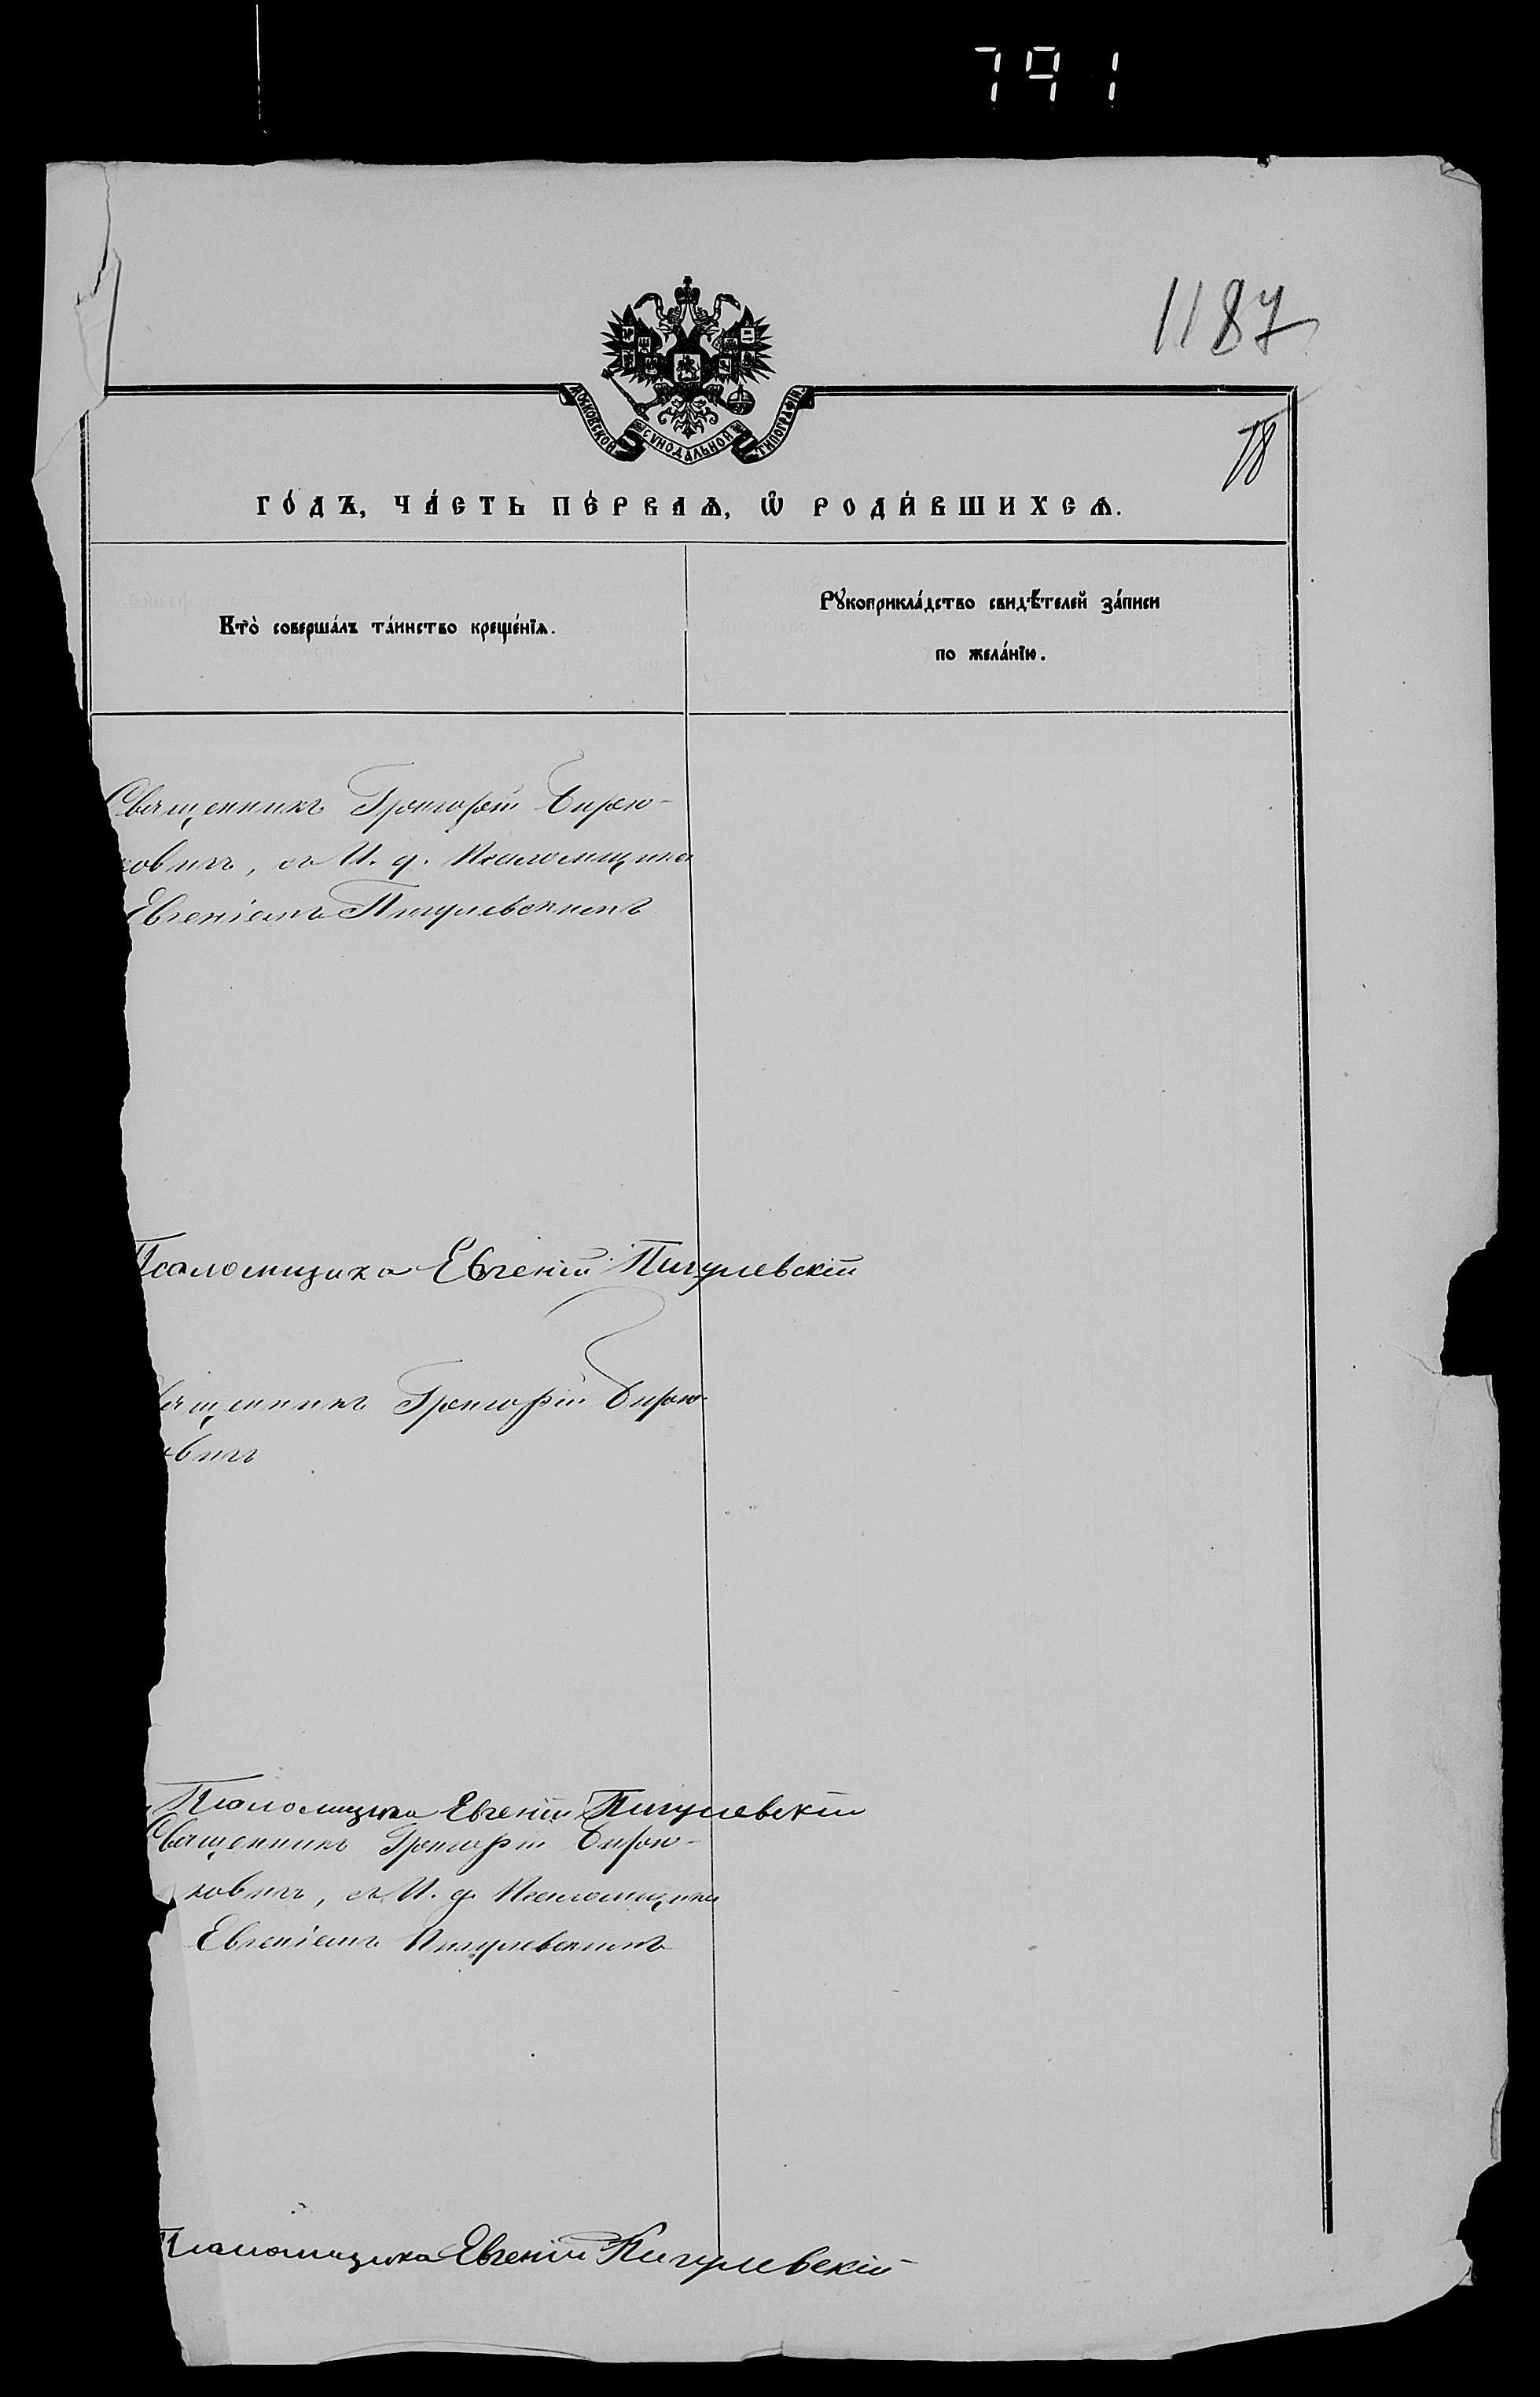 791
1187
78
МОСКОВСКОЙ СѴНОДАЛЬНОЙ ТИПОГРАФІИ.
ГО́ДЪ, ЧА́СТЬ ПЕ́РВАѦ, Ѡ҆ РОДИ́ВШИХСѦ.
Кто̀ соверша́лъ та́инство креще́нїѧ.
Рꙋкоприкла́дство свидѣ́телей за́писи
по жела́нїю.
Священникъ Григорій Бирю-
ковичъ, съ И. д. Псаломщика
Евгеніемъ Пигулевскимъ
Псаломщика Евгеній Пигулевскій
вященникъ Григорій Бирю-
вичъ
Псаломщика Евгеній Пигулевскій
Священникъ Григорій Бирю-
ковичъ, съ И. д. Псаломщика
Евгеніемъ Пигулевскимъ
Псаломщика Евгеній Пигулевскій